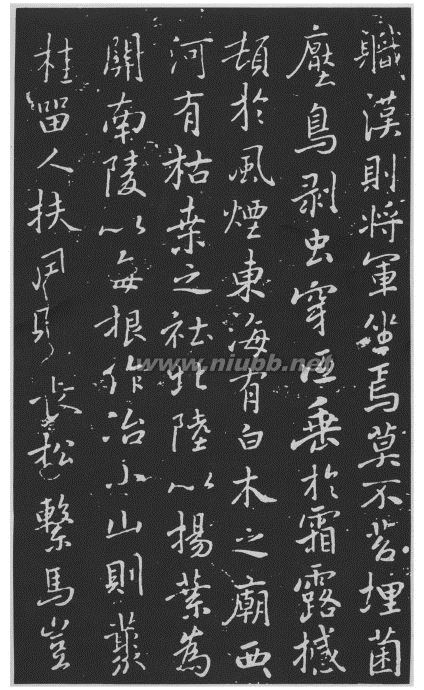 軄漢則将軍坐焉莫不苔埋菌
壓鳥剥虫穿低垂於霜露撼
頓於風煙東海有白木之廟西
河有枯桒之社北陸以揚葉為
關南陵以每根作冶小山則叢
桂留人扶風則長松繫馬豈
www.niubb.net